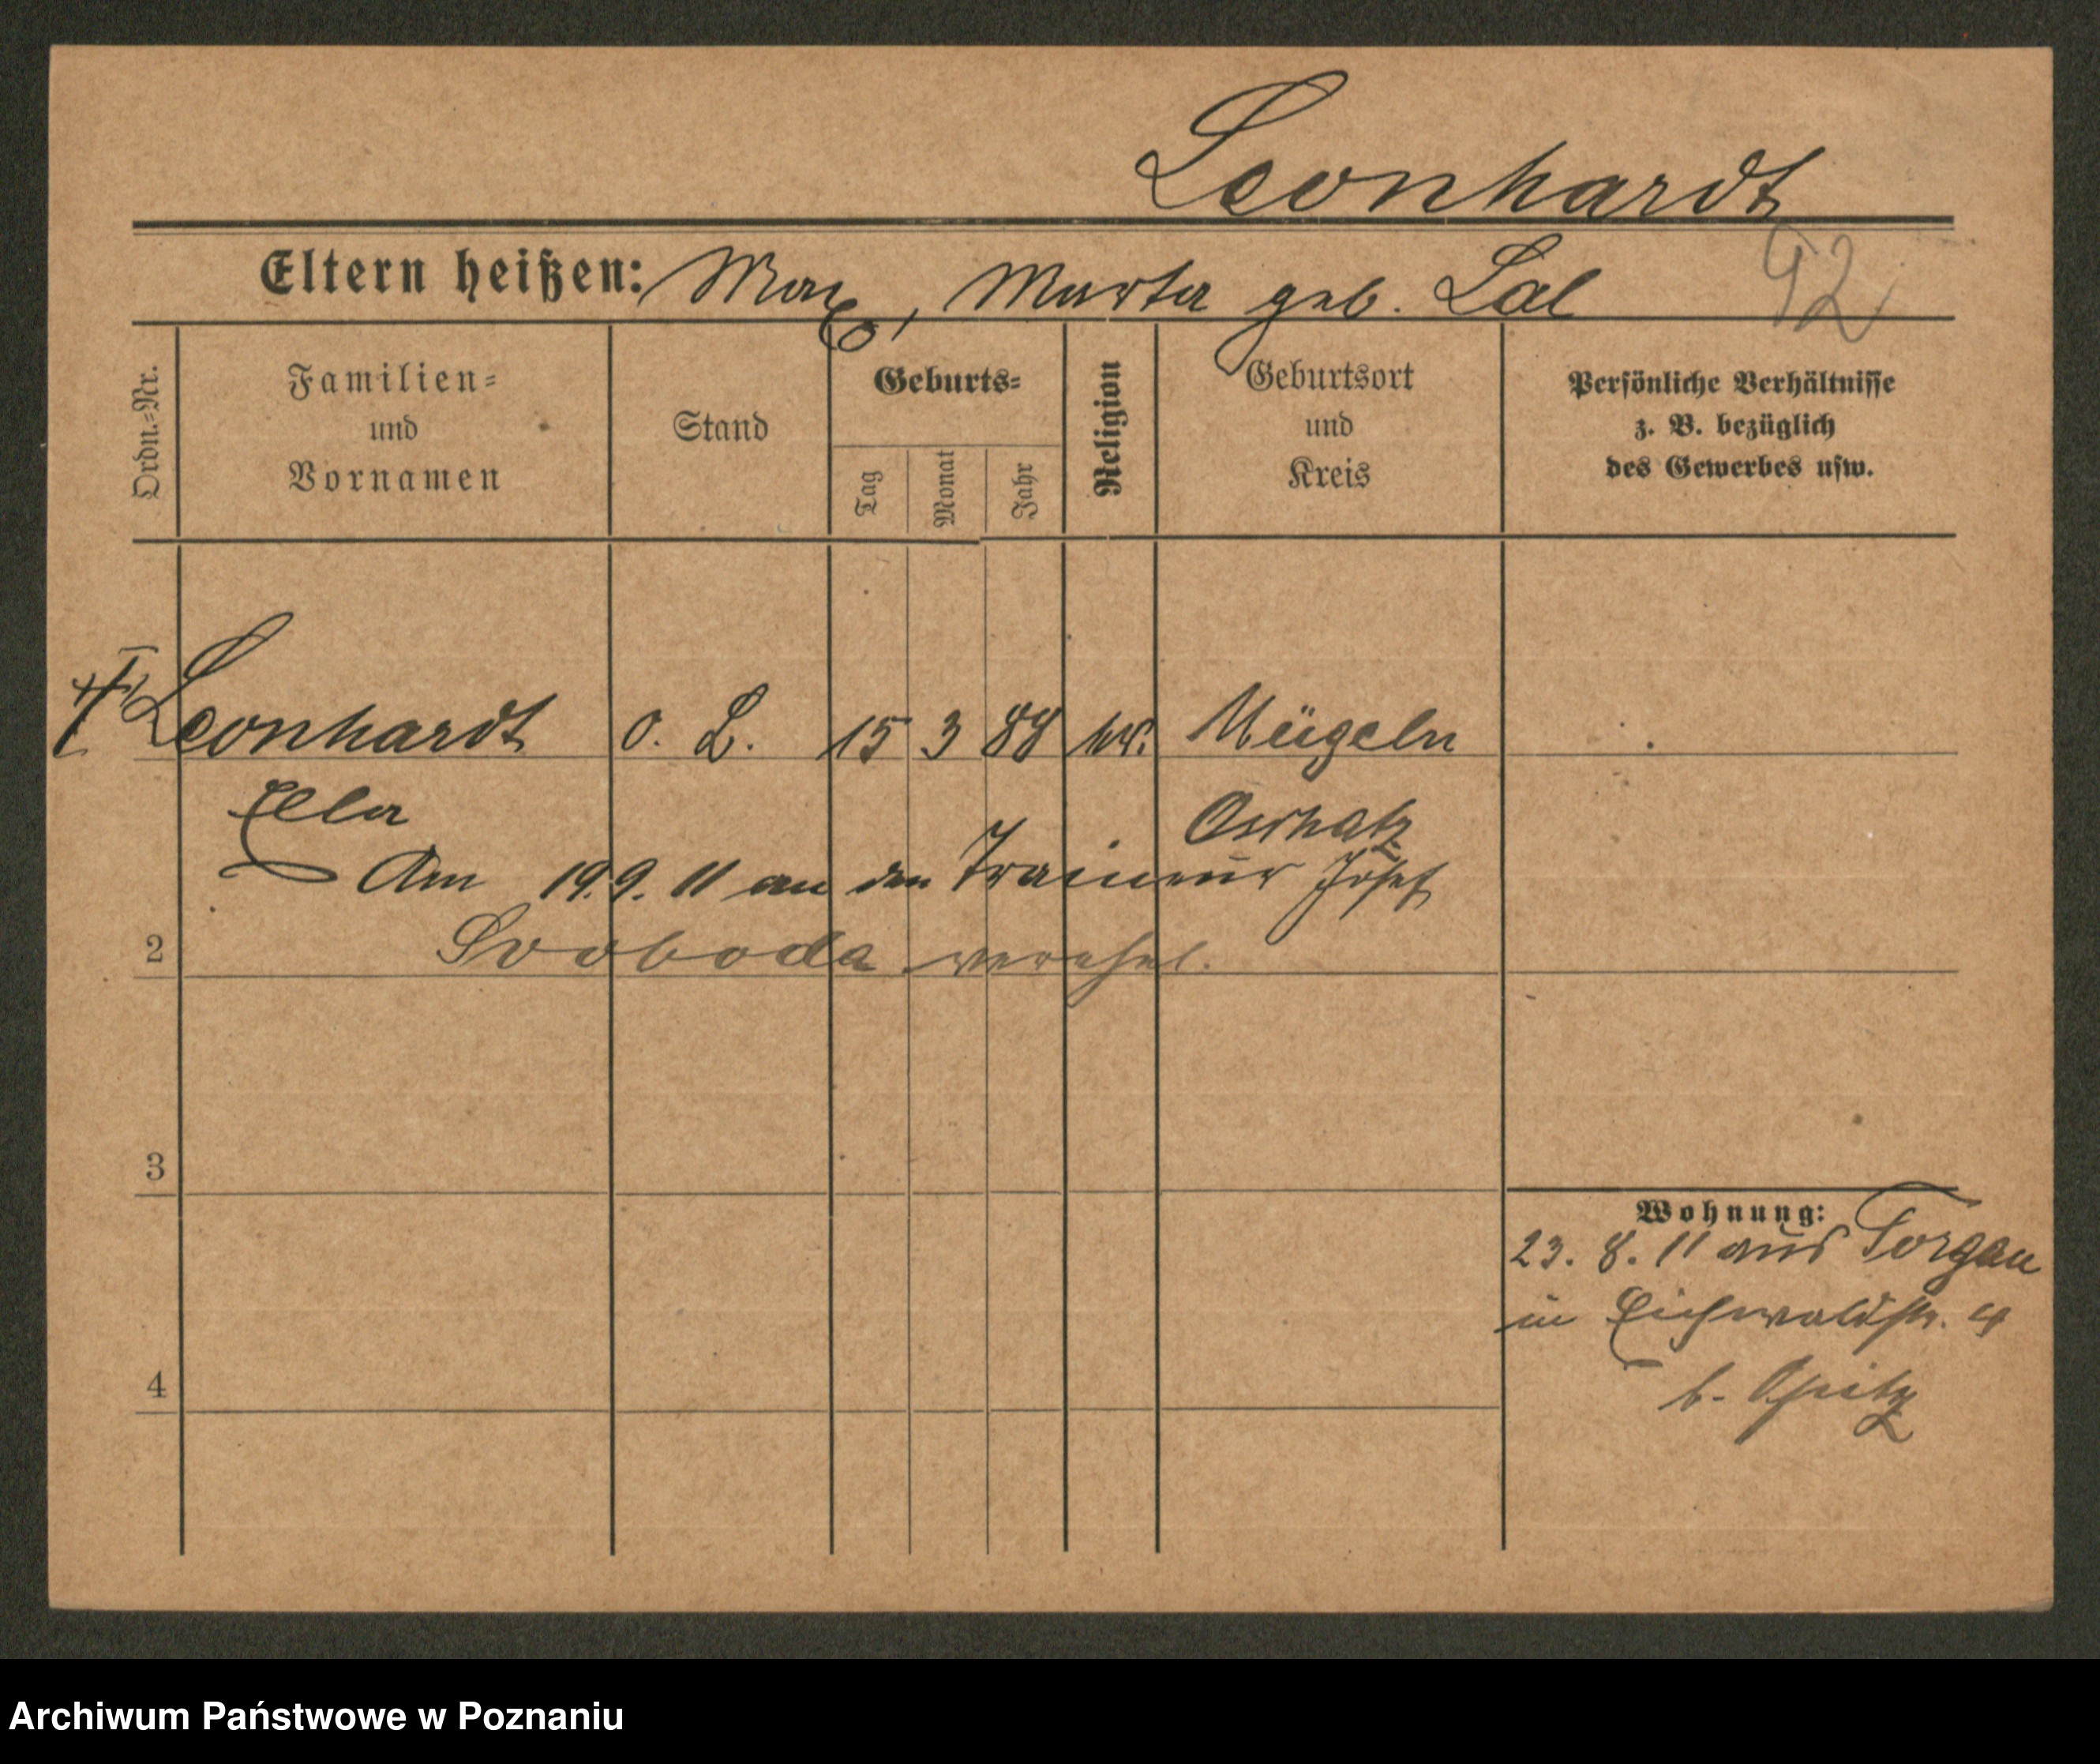 Leonhardt
Eltern heißen: Max, Marta geb. Lal
92
Ordn.=Nr.
Familien=
und
Vornamen
Stand
Geburts=
Tag
Monat
Jahr
Religion
Geburtsort
und
Kreis
Persönliche Verhältnisse
z. B. bezüglich
des Gewerbes usw.
Leonhardt o. L. 15 3 88 Mügeln
Ella Oschatz
Am 19.9.11 an den Traineur Josef
2 Svoboda verehel.
3
4
Wohnung:
23. 8. 11 aus Torgau
in Eichwaldstr. 4
b. Opitz
Archiwum Państwowe w Poznaniu